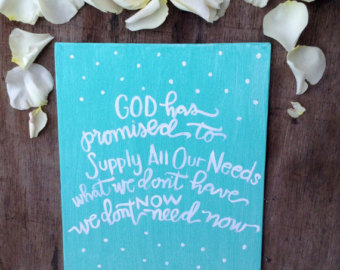 GOD has
promised to
Supply All Our Needs
what we don't have
NOW
we don't need now